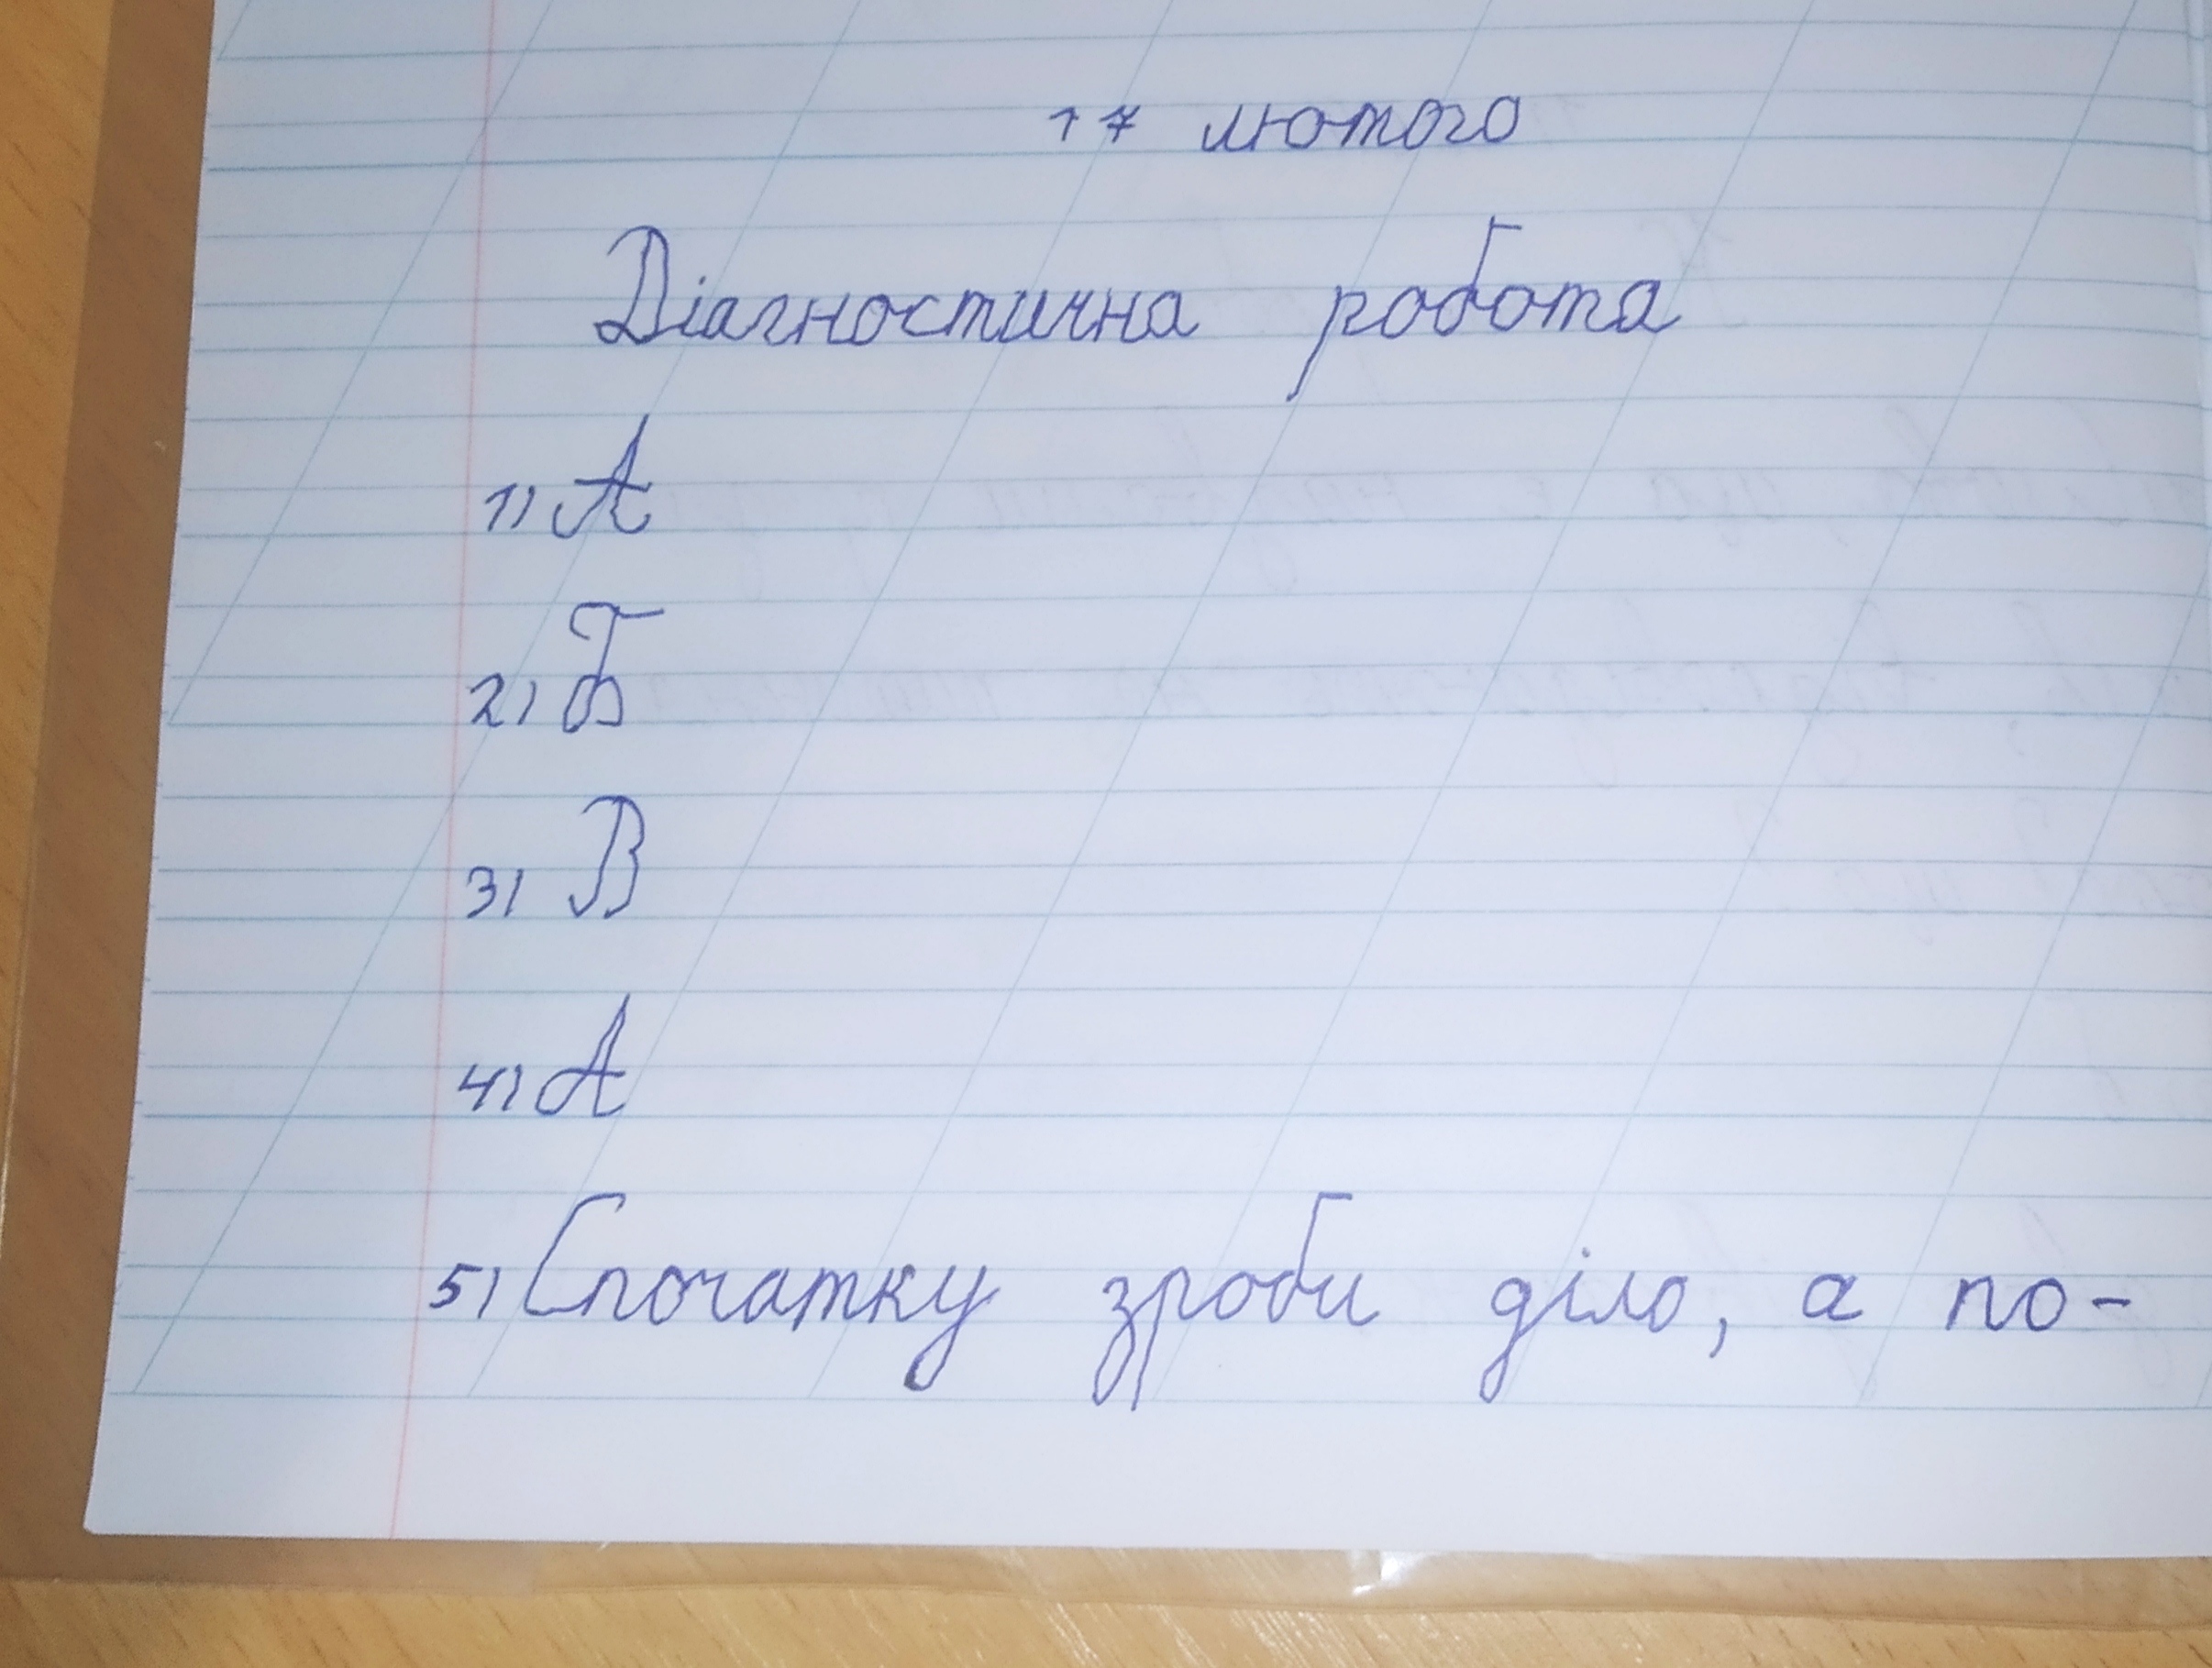 17 лютого
Діагностична робота
1) А
2) Б
3) В
4) А
5) Спочатку зроби діло, а по-